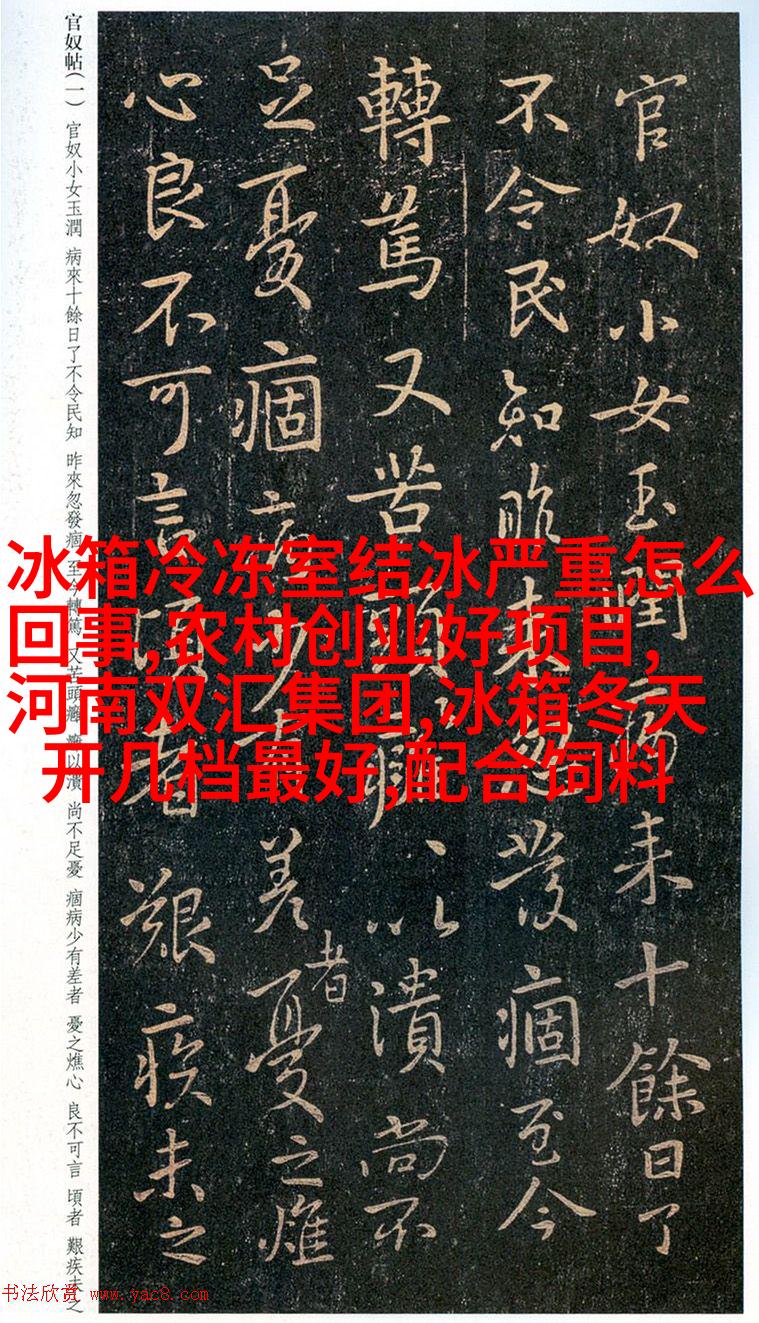 官奴小女玉潤病来十餘日了
不令民知昨来忽發痼至今
轉篤又苦頭癰、以潰尚不
足憂痼病少有差者憂之燋
心良不可言頃者艱疾未之
官奴帖(一) 官奴小女玉潤 病來十餘日了不令民知 昨來忽發痼 至今轉篤 又苦頭癰 癰以潰 尚不足憂 痼病少有差者 憂之燋心 良不可言 頃者 艱疾未之
冰箱冷冻室结冰严重怎么
回事,农村创业好项目,
河南双汇集团,冰箱冬天
开几档最好,配合饲料
书法欣赏 www.yac8.com